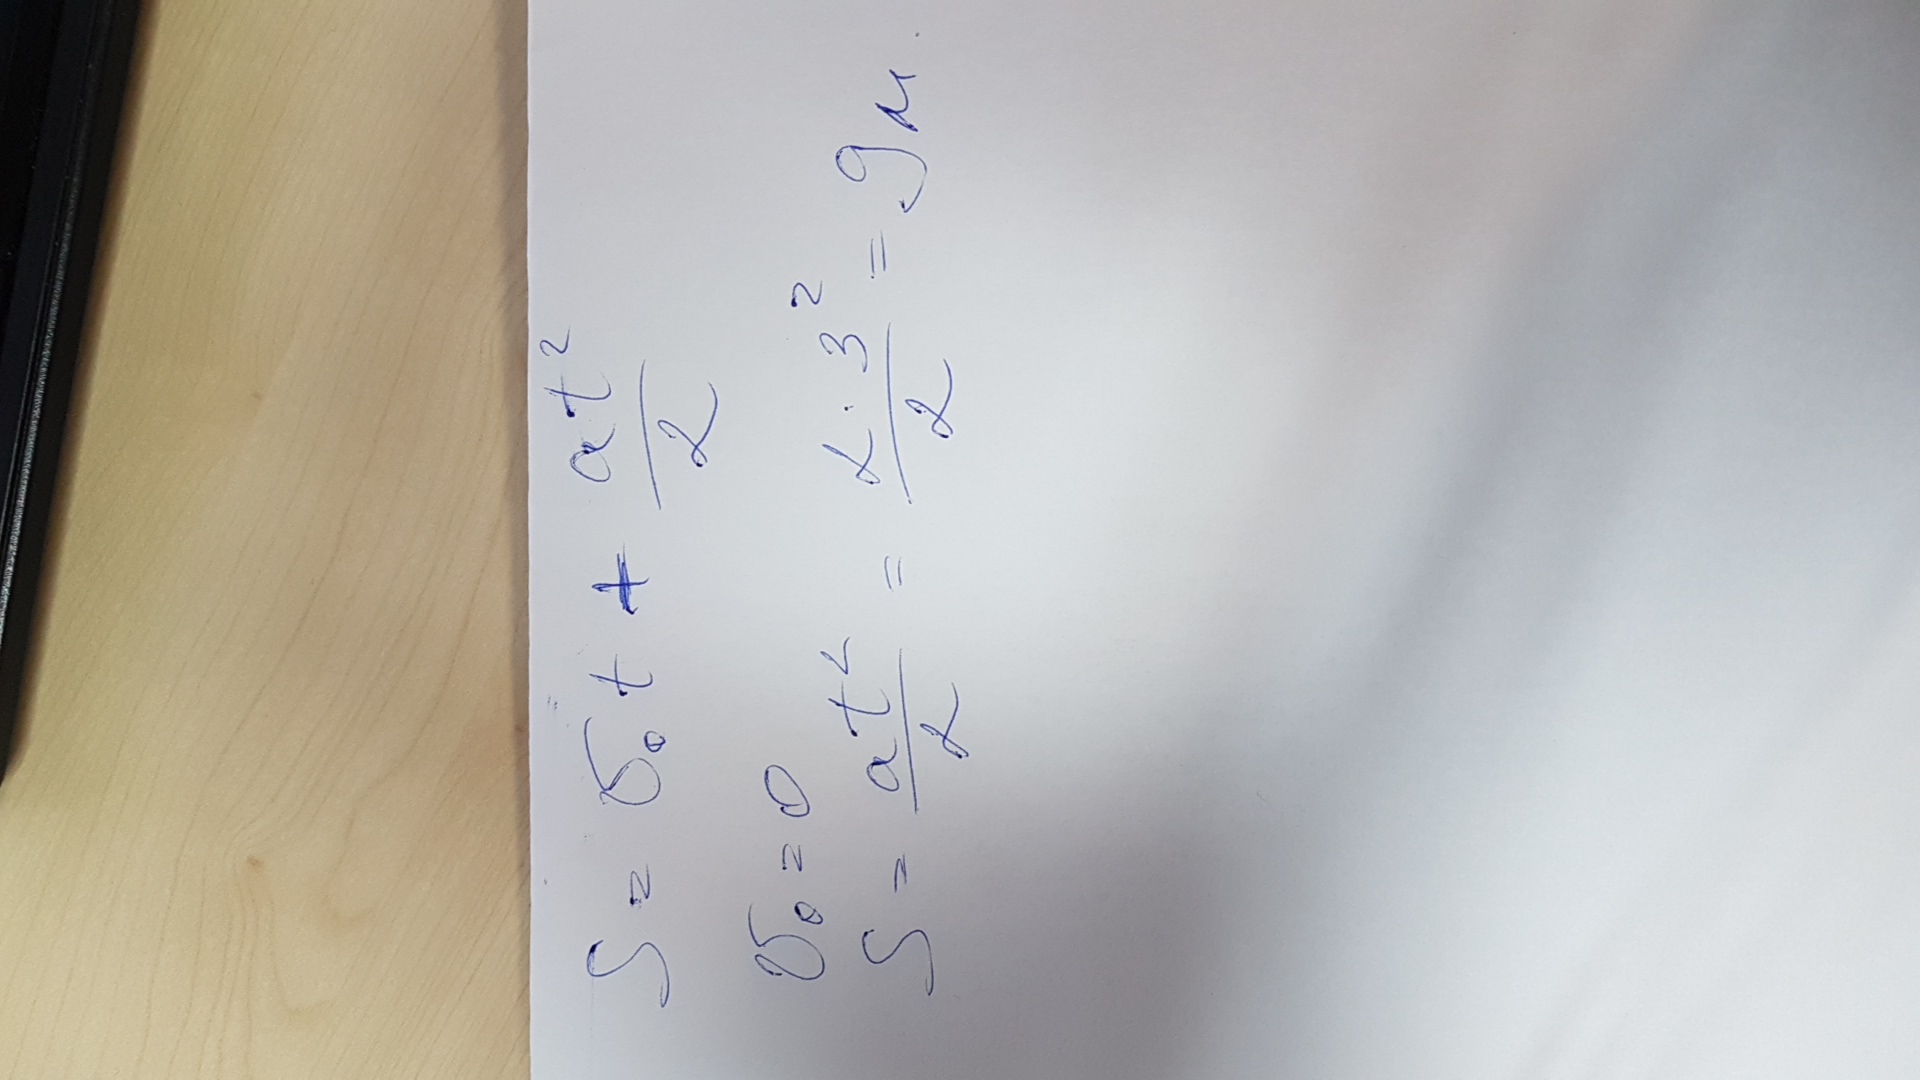 S = υ₀t + at²/2
υ₀ = 0
S = at²/2 = 2·3²/2 = 9 м.